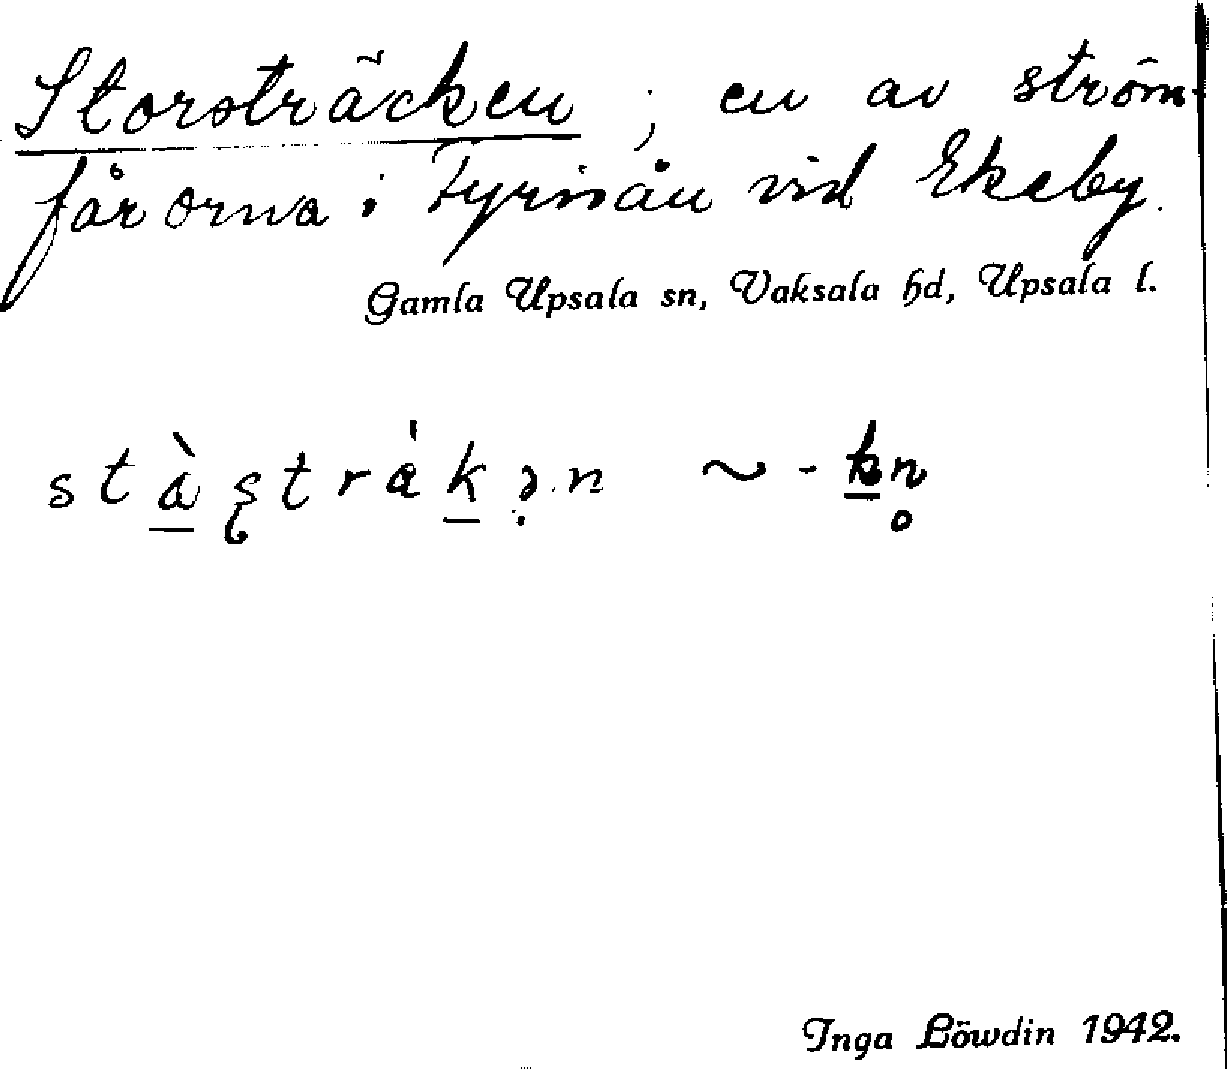 Storsträcken ; en av ström-
fårorna i Fyrisån vid Ekeby.
Gamla Upsala sn, Vaksala hd, Upsala l.
Inga Löwdin 1942.